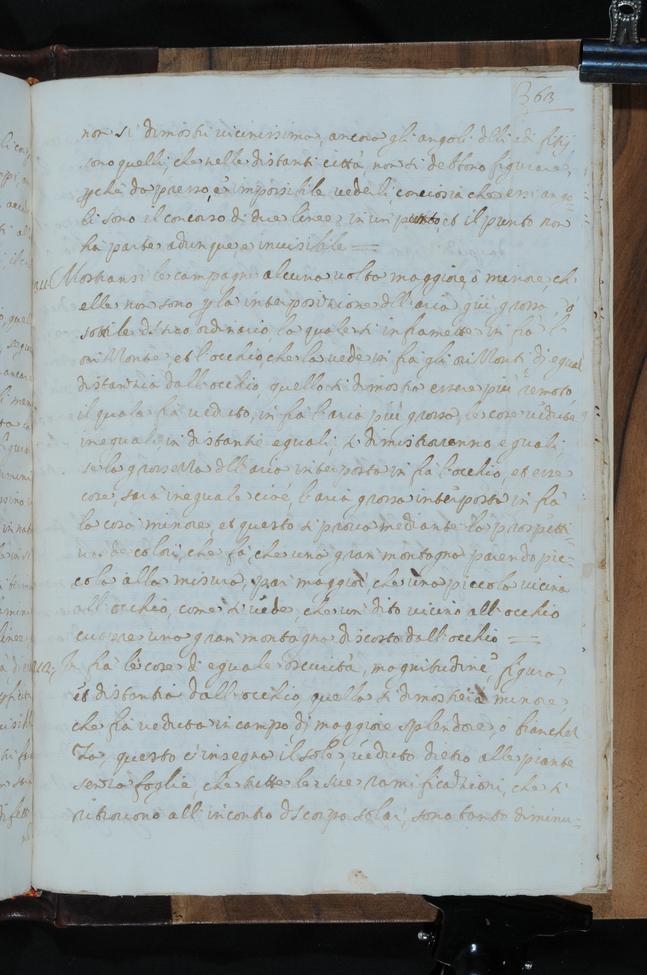 363
non si dimostri vicinissima, ancora gli angoli delli edifitij
sono quelli, che nelle distanti città, non si debbono figurare,
p̱chè da presso, è impossibile vederli conciosia che essi ango=
li sono il concorso di due linee, in un punto et il punto non
ha parte adunque, è invisibile
Mostransi le campagne alcuna volta maggiore, ò minore ch
elle non sono p̱ la interposizione dell'aria più grossa, ò
sottile del suo ordinario, la quale si inframette in frà l'
orizzonte, et l'occhio, che la vede in fra gli orizzonti di equal
distantia dall'occhio, quello si dimostra essere più remoto
il quale fia veduto, in frà l'aria più grossa, le cose vedute
inequali, in distantie equali, si dimostraranno equali,
se la grossezza dell'aria interposta in frà l'occhio, et esse
cose, sarà inequale cioè, l'aria grossa interposta in frà
la cosa minore, et questo si prova mediante la prospetti=
va de colori, che fà, che una gran montagna parendo pic=
cola alla misura, par maggior, che una piccola vicina
all'occhio, come si vede, che un dito vicino all'occhio
cuopre una gran montagna discosto dall'occhio
In frà le cose di equale oscurità, magnitudine, figura,
et distantia dall'occhio, quella si dimostrerà minore,
che fia veduta in campo di maggiore splendore, ò bianchez
za, questo c'insegna il sole, veduto dietro alle piante
senza foglie, che tutte le sue ramificazioni, che si
ritrovono all'incontro del corpo solar, sono tanto diminu=